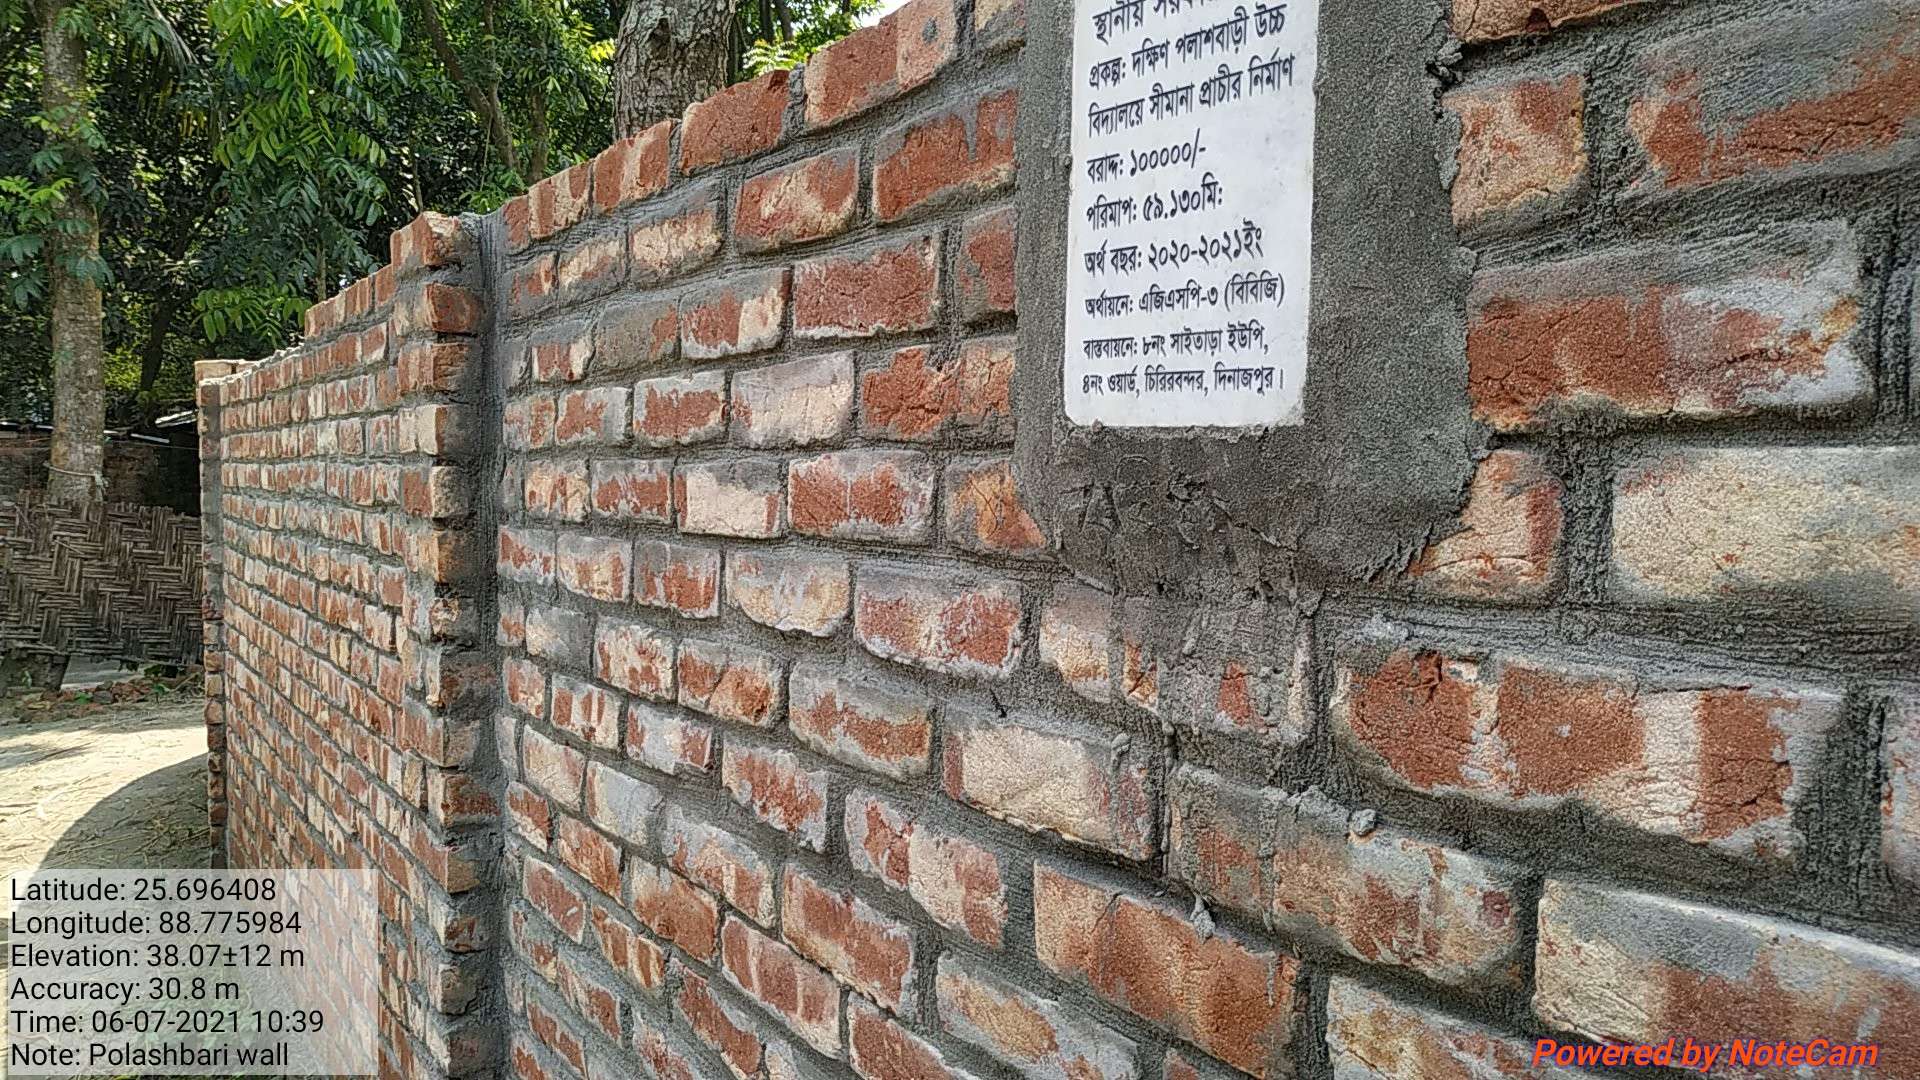 স্থানীয়
প্রকল্প: দক্ষিণ পলাশবাড়ী উচ্চ
বিদ্যালয়ে সীমানা প্রাচীর নির্মাণ
বরাদ্দ: ১০০০০০/-
পরিমাপ: ৫৯.১৩০মি:
অর্থ বছর: ২০২০-২০২১ইং
অর্থায়নে: এজিএসপি-৩ (বিবিজি)
বাস্তবায়নে: ৮নং সাইতাড়া ইউপি,
৪নং ওয়ার্ড, চিরিরবন্দর, দিনাজপুর।
Latitude: 25.696408
Longitude: 88.775984
Elevation: 38.07±12 m
Accuracy: 30.8 m
Time: 06-07-2021 10:39
Note: Polashbari wall
Powered by NoteCam